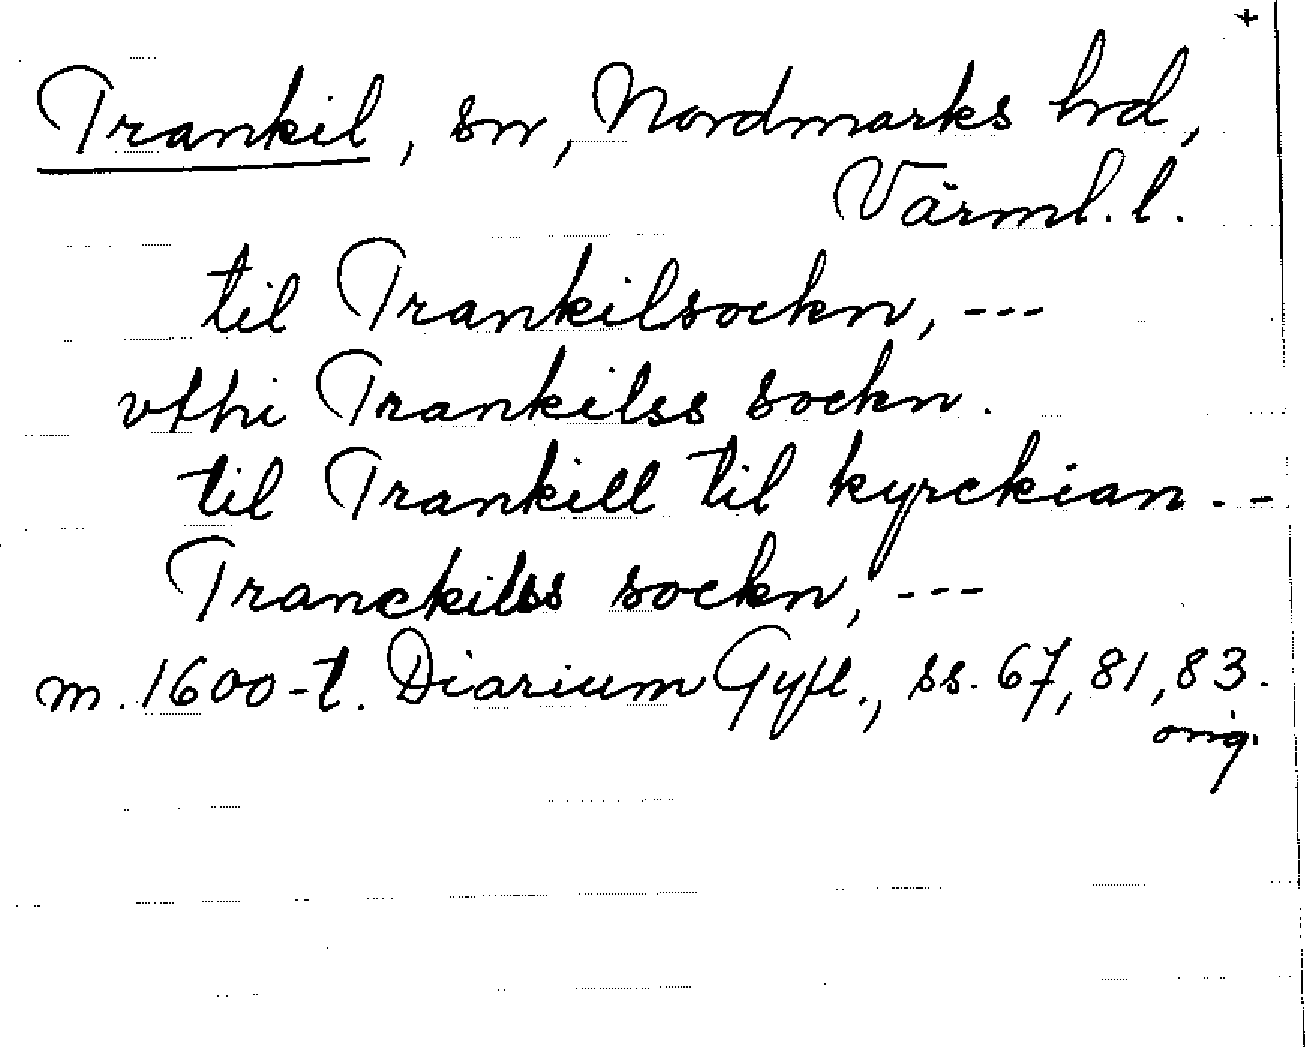 +
Trankil, sn, Nordmarks hd,
Värml. l.
til Trankilsockn, ---
vthi Trankilss sockn.
til Trankill til kyrckian --
Tranckilss sockn, ---
m. 1600-t. Diarium Gyll., ss. 67, 81, 83.
orig.